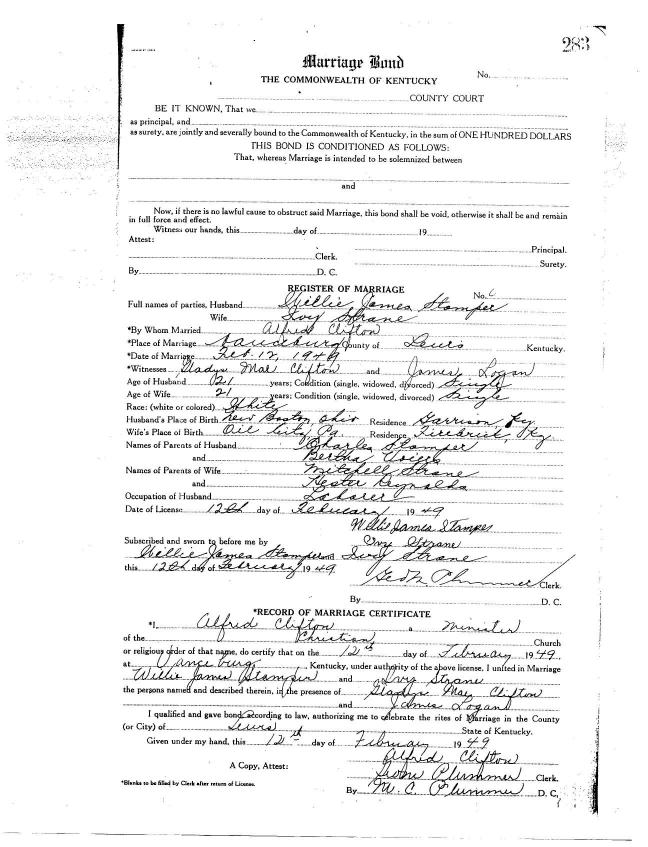 283
Marriage Bond
No.
THE COMMONWEALTH OF KENTUCKY
COUNTY COURT
BE IT KNOWN, That we
as principal, and
as surety, are jointly and severally bound to the Commonwealth of Kentucky, in the sum of ONE HUNDRED DOLLARS
THIS BOND IS CONDITIONED AS FOLLOWS:
That, whereas Marriage is intended to be solemnized between
and
Now, if there is no lawful cause to obstruct said Marriage, this bond shall be void, otherwise it shall be and remain
in full force and effect.
Witness our hands, this day of 19
Attest: Principal.
Clerk.
Surety.
By D. C.
REGISTER OF MARRIAGE No. 6
Full names of parties, Husband Willie James Stamper
Wife Ivry Strane
*By Whom Married Alfred Clifton
*Place of Marriage Vanceburg County of Lewis Kentucky.
*Date of Marriage Feb. 12, 1949
*Witnesses Gladys Mae Clifton and James Logan
Age of Husband 21 years; Condition (single, widowed, divorced) Single
Age of Wife 21 years; Condition (single, widowed, divorced) Single
Race: (white or colored) White
Husband's Place of Birth New Boston, Ohio Residence Garrison, Ky
Wife's Place of Birth Oil City, Pa. Residence Ky
Names of Parents of Husband Charles Stamper
and Bertha
Names of Parents of Wife Mitchell Strane
and Hester Reynolds
Occupation of Husband Laborer
Date of License 12th day of February 1949
Willie James Stamper
Subscribed and sworn to before me by Ivry Strane
Willie James Stamper and Ivry Strane
this 12th day of February 1949
Plummer Clerk.
By D. C.
*RECORD OF MARRIAGE CERTIFICATE
*I, Alfred Clifton a Minister
of the Christian Church
or religious order of that name, do certify that on the 12th day of February 1949,
at Vanceburg, Kentucky, under authority of the above license, I united in Marriage
Willie James Stamper and Ivry Strane
the persons named and described therein, in the presence of Gladys Mae Clifton
and James Logan
I qualified and gave bond according to law, authorizing me to celebrate the rites of Marriage in the County
(or City) of Lewis State of Kentucky.
Given under my hand, this 12th day of February 1949
Alfred Clifton
A Copy, Attest: Plummer Clerk.
*Blanks to be filled by Clerk after return of License. By M. C. Plummer D. C.